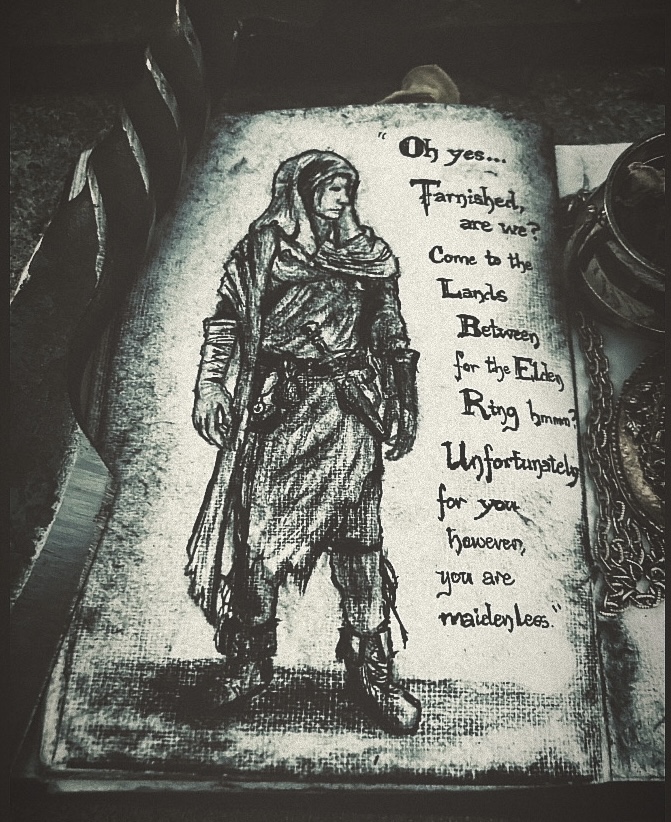 "Oh yes...
Tarnished,
are we?
Come to the
Lands
Between
for the Elden
Ring hmmm?
Unfortunately
for you
however,
you are
maidenless."